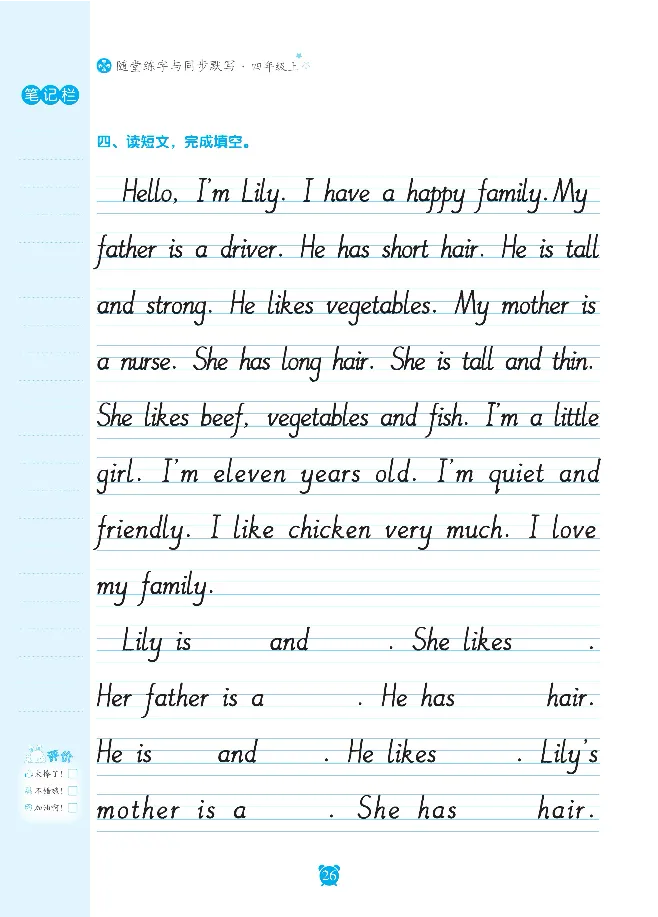 随堂练字与同步默写·四年级上
笔记栏
四、读短文，完成填空。
Hello, I'm Lily. I have a happy family. My
father is a driver. He has short hair. He is tall
and strong. He likes vegetables. My mother is
a nurse. She has long hair. She is tall and thin.
She likes beef, vegetables and fish. I'm a little
girl. I'm eleven years old. I'm quiet and
friendly. I like chicken very much. I love
my family.
Lily is and . She likes .
Her father is a . He has hair.
He is and . He likes . Lily's
mother is a . She has hair.
评价
太棒了!
不错哦!
加油啊!
26